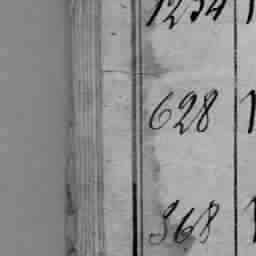 1254
628
368